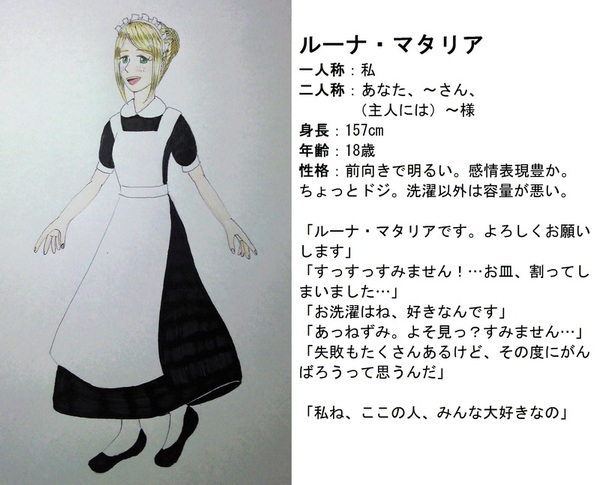 ルーナ・マタリア
一人称：私
二人称：あなた、～さん、
（主人には）～様
身長：157cm
年齢：18歳
性格：前向きで明るい。感情表現豊か。
ちょっとドジ。洗濯以外は容量が悪い。
「ルーナ・マタリアです。よろしくお願い
します」
「すっすっすみません！…お皿、割ってし
まいました…」
「お洗濯はね、好きなんです」
「あっねずみ。よそ見っ？すみません…」
「失敗もたくさんあるけど、その度にがん
ばろうって思うんだ」
「私ね、ここの人、みんな大好きなの」